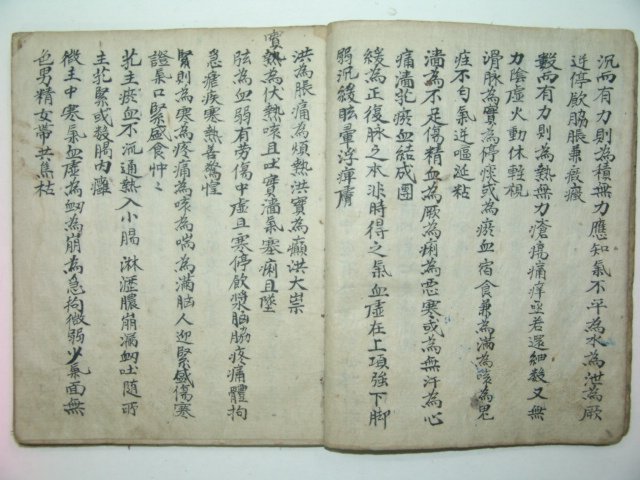 沉而有力則為積無力應知氣不平為水為泄為厥
逆停飮脇脹兼癥瘕
數而有力則為熱無力瘡瘍痛痒並若還細數又無
力陰虛火動休輕視
滑脉為實為停痰或為瘀血宿食兼為滿為咳為鬼
疰不匀氣逆嘔延粘
濇為不足傷精血為厥為痢為惡寒或為無汗為心
痛濇乾瘀血結成團
緩為正復脉之本非時得之氣血虛在上項強下脚
弱沉緩眩暈浮痺膚
洪為脹痛為煩熱洪實為癲洪大祟
實熱為伏熱咳且吐實濇氣塞痢且墜
弦為血弱有勞傷中虛且寒停飮漿胸脇疼痛體拘
急瘧疾寒熱善驚惶
緊則為寒為疼痛為咳為喘為滿脑人迎緊盛傷寒
證氣口緊盛食忡々
芤主瘀血不沉通熱入小腸淋瀝膿崩漏衂吐随所
主芤緊或數腸內癰
微主中寒氣血虛為衂為崩為急拘微弱少氣面無
色男精女帶共焦枯